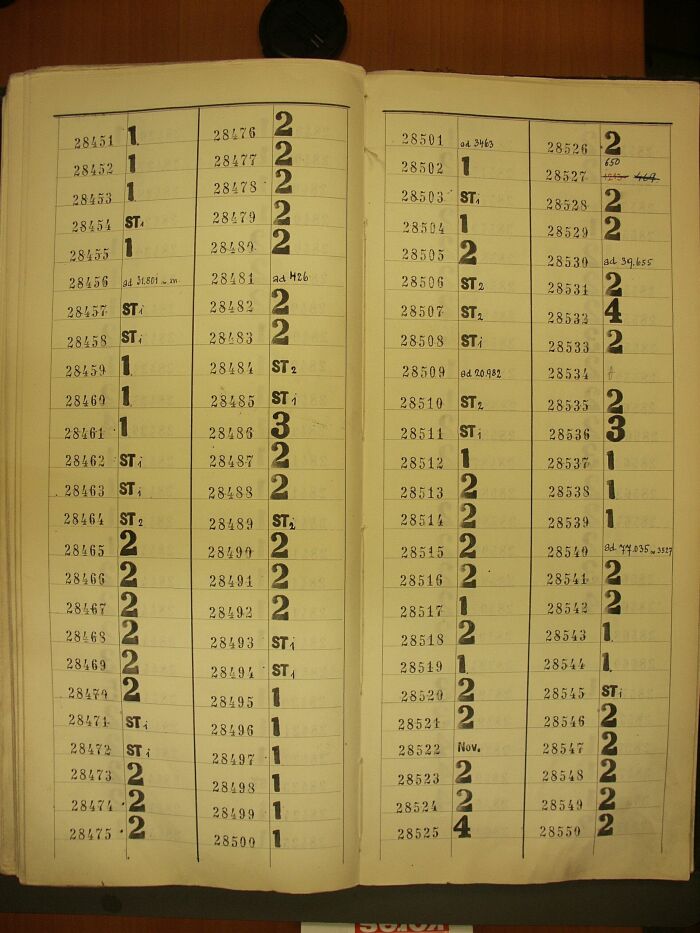 28451 1
28452 1
28453 1
28454 ST1
28455 1
28456 ad 31.801
28457 ST1
28458 ST1
28459 1
28460 1
28461 1
28462 ST1
28463 ST1
28464 ST2
28465 2
28466 2
28467 2
28468 2
28469 2
28470 2
28471 ST1
28472 ST1
28473 2
28474 2
28475 2
28476 2
28477 2
28478 2
28479 2
28480 2
28481 ad 426
28482 2
28483 2
28484 ST2
28485 ST1
28486 3
28487 2
28488 2
28489 ST2
28490 2
28491 2
28492 2
28493 ST1
28494 ST1
28495 1
28496 1
28497 1
28498 1
28499 1
28500 1
28501 ad 3463
28502 1
28503 ST1
28504 1
28505 2
28506 ST2
28507 ST2
28508 ST1
28509 ad 20.982
28510 ST2
28511 ST1
28512 1
28513 2
28514 2
28515 2
28516 2
28517 1
28518 2
28519 1
28520 2
28521 2
28522 Nov.
28523 2
28524 2
28525 4
28526 2
650
28527 469
28528 2
28529 2
28530 ad 39.655
28531 2
28532 4
28533 2
28534
28535 2
28536 3
28537 1
28538 1
28539 1
28540 ad 77.035 3527
28541 2
28542 2
28543 1
28544 1
28545 ST1
28546 2
28547 2
28548 2
28549 2
28550 2